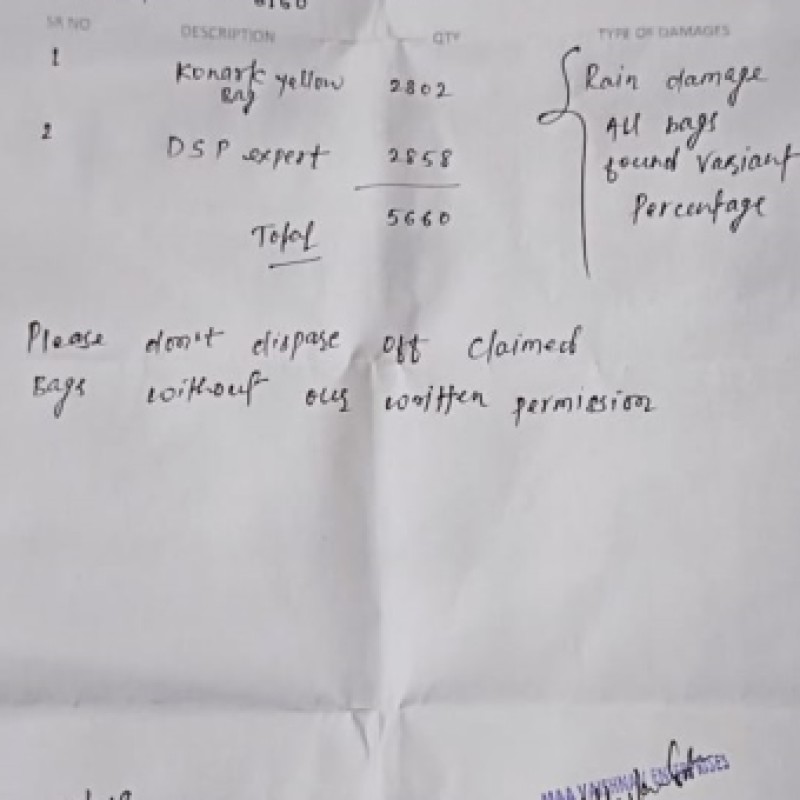 SR NO DESCRIPTION QTY TYPE OF DAMAGES
1 Konark yellow 2802 Rain damage
Bag
All bags
2 DSP expert 2858 found variant
Total 5660 Percentage
Please don't dispase off claimed
Bags without our written permission
MAA VAISHNAVI ENTERPRISES